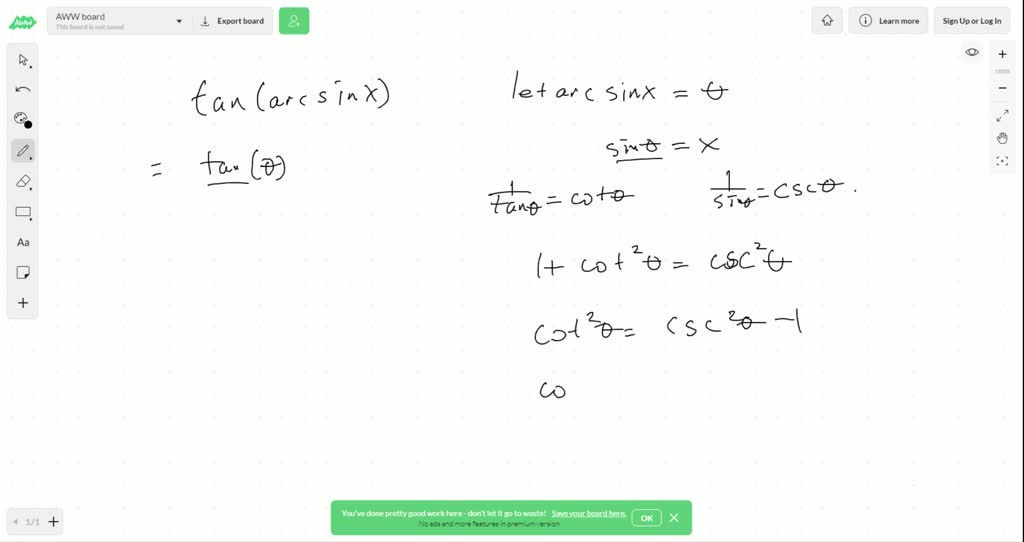 AWW
AWW board
This board is not saved
Export board
Learn more
Sign Up or Log In
100%
tan(arcsinx)
= tan(θ)
let arcsinx = θ
sinθ = x
1/tanθ = cotθ
1/sinθ = cscθ.
1 + cot²θ = csc²θ
cot²θ = csc²θ - 1
co
Aa
1/1
You've done pretty good work here - don't let it go to waste! Save your board here.
No ads and more features in premium version
OK